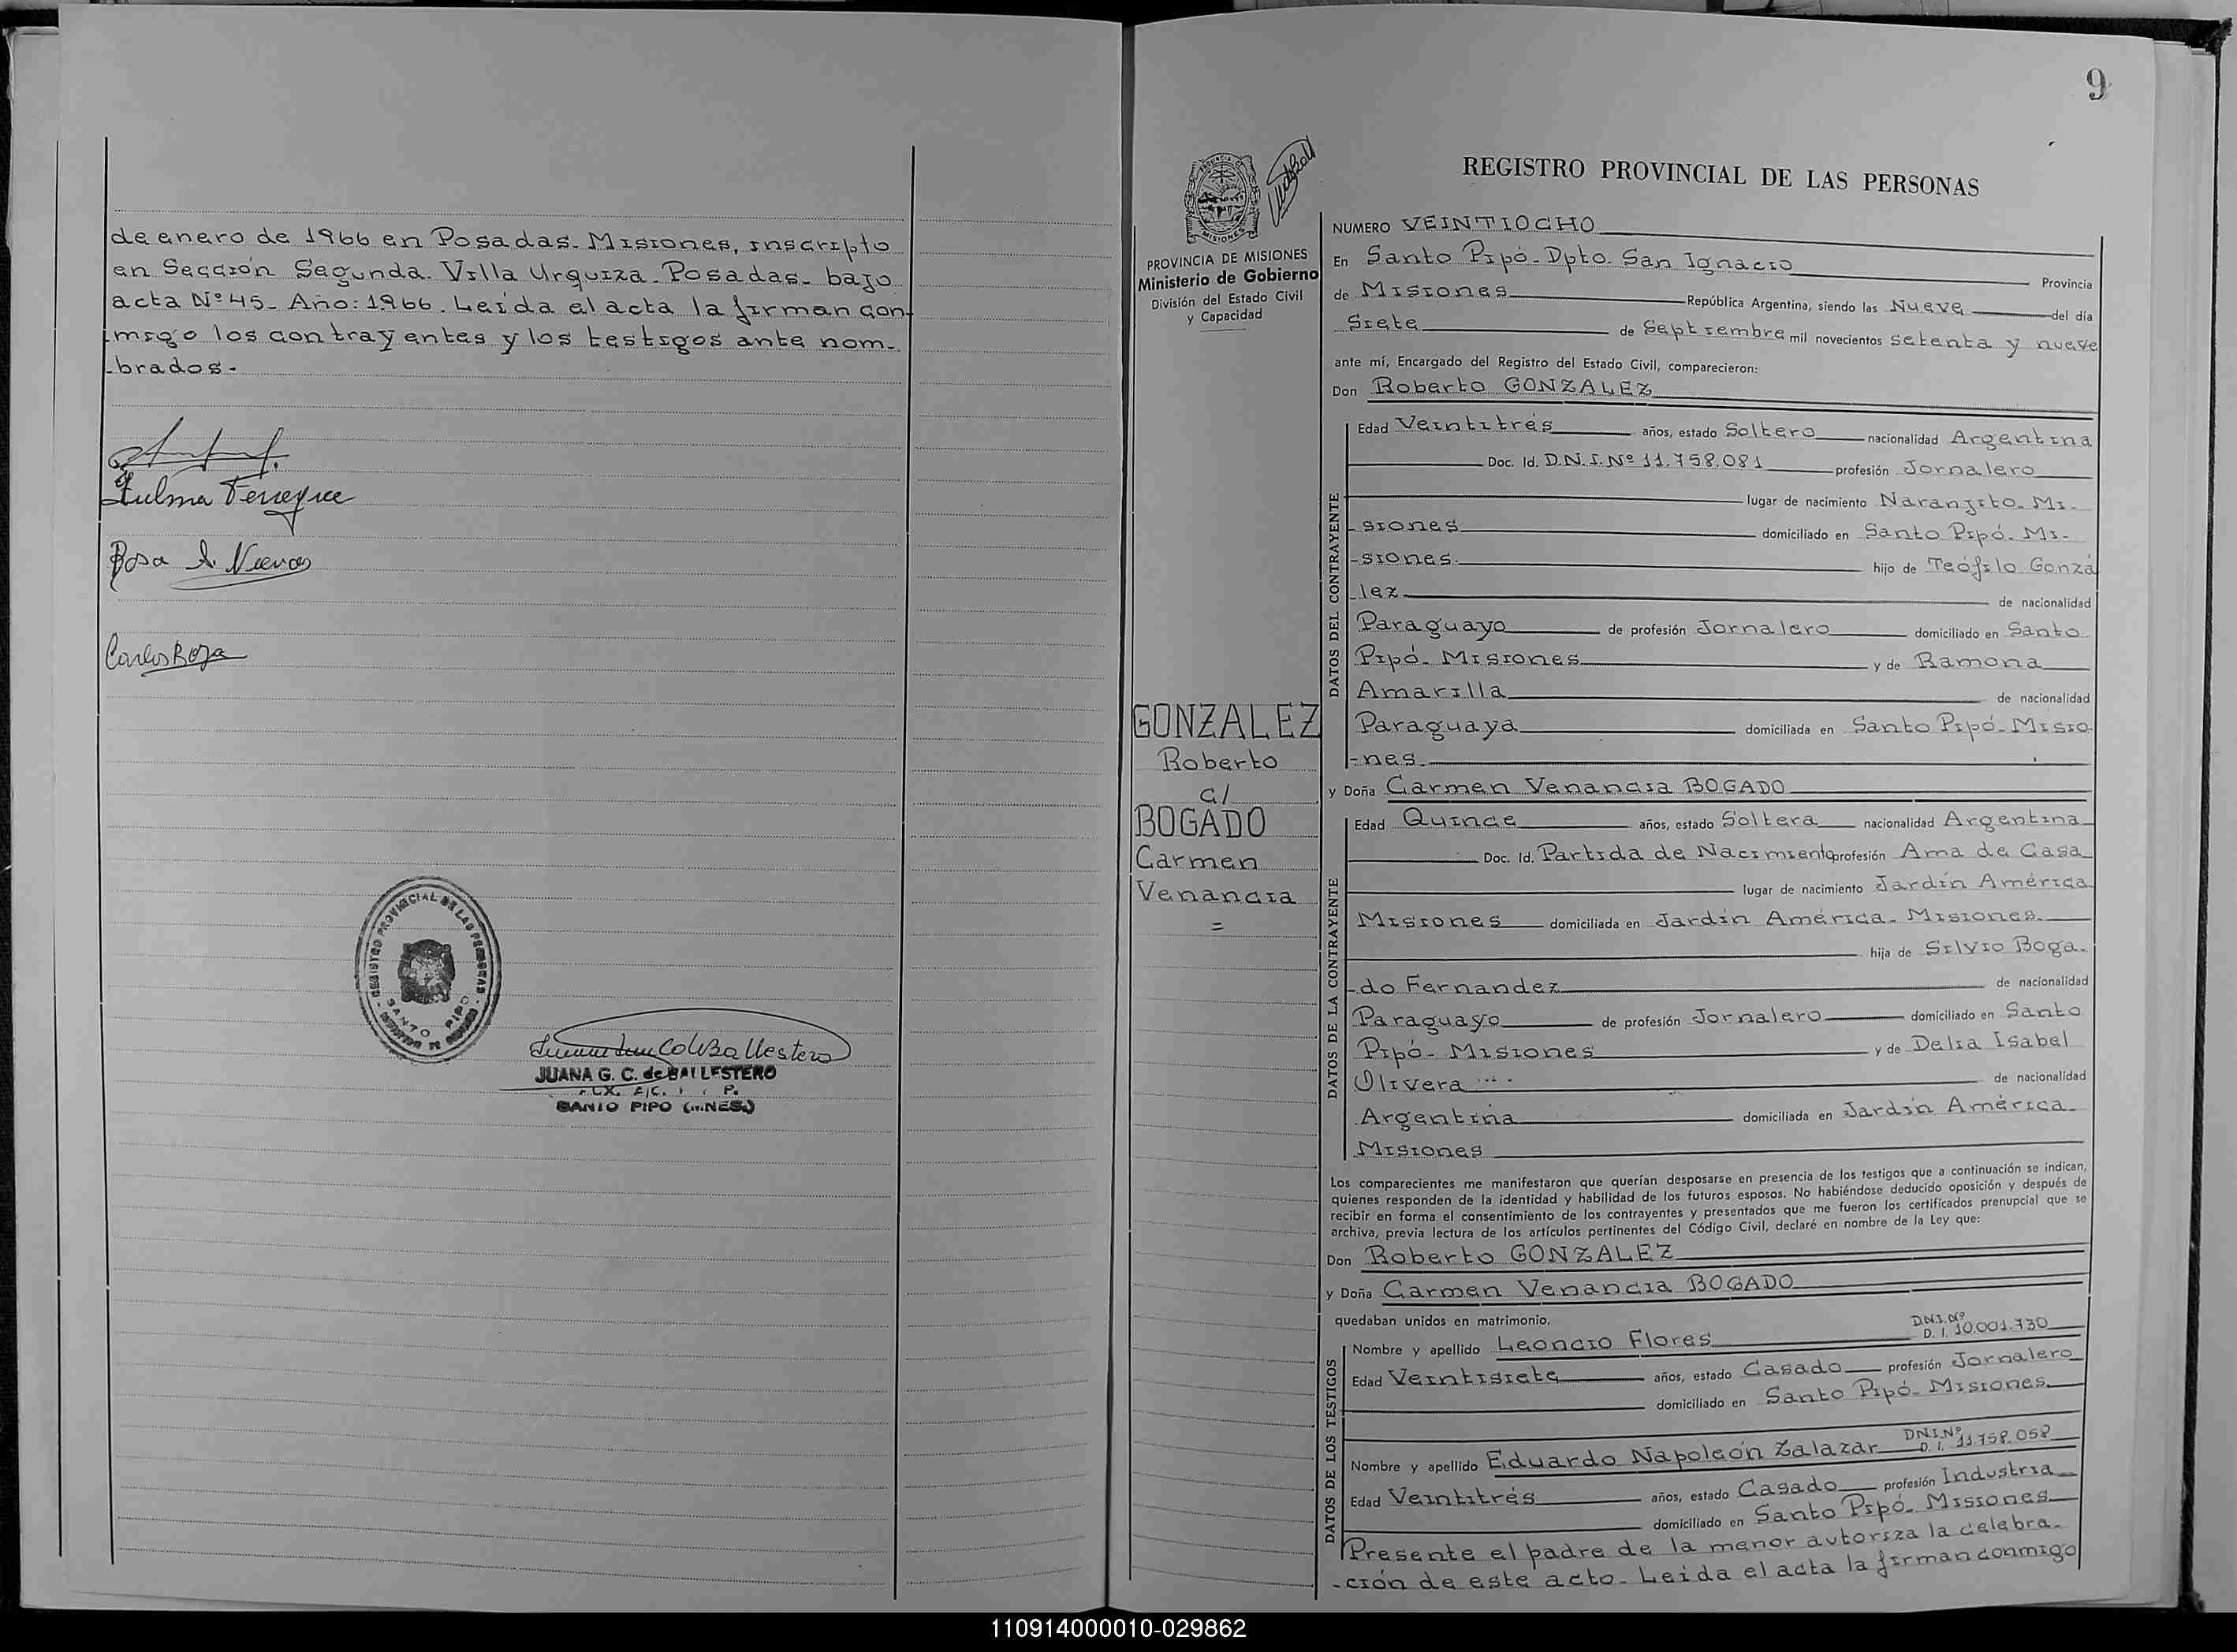 de enero de 1966 en Posadas. Misiones, inscripto
en Sección Segunda. Villa Urquiza. Posadas. bajo
acta Nº 45. Año: 1966. Leída el acta la firman con-
migo los contrayentes y los testigos ante nom-
-brados.
Rosa A. Nuevas
Carlos Boza
REGISTRO PROVINCIAL DE LAS PERSONAS
SANTO PIPO
Ballestero
JUANA G. C. de BALLESTERO
SANTO PIPO (MNES.)
9
PROVINCIA DE
MISIONES
PROVINCIA DE MISIONES
Ministerio de Gobierno
División del Estado Civil
y Capacidad
GONZALEZ
Roberto
c/
BOGADO
Carmen
Venancia
=
REGISTRO PROVINCIAL DE LAS PERSONAS
NUMERO VEINTIOCHO
En Santo Pipó. Dpto. San Ignacio Provincia
de Misiones República Argentina, siendo las Nueve del día
Siete de Septiembre mil novecientos setenta y nueve
ante mí, Encargado del Registro del Estado Civil, comparecieron:
Don Roberto GONZALEZ
DATOS DEL CONTRAYENTE
Edad Veintitrés años, estado Soltero nacionalidad Argentina
Doc. Id. D.N.I. Nº 11.758.081 profesión Jornalero
lugar de nacimiento Naranjito. Mi-
-siones domiciliado en Santo Pipó. Mi-
-siones. hijo de Teófilo Gonzá
-lez de nacionalidad
Paraguayo de profesión Jornalero domiciliado en Santo
Pipó. Misiones y de Ramona
Amarilla de nacionalidad
Paraguaya domiciliada en Santo Pipó. Misio
-nes.
y Doña Carmen Venancia BOGADO
DATOS DE LA CONTRAYENTE
Edad Quince años, estado Soltera nacionalidad Argentina
Doc. Id. Partida de Nacimiento profesión Ama de Casa
lugar de nacimiento Jardín América
Misiones domiciliada en Jardín América. Misiones.
hija de Silvio Boga-
-do Fernandez de nacionalidad
Paraguayo de profesión Jornalero domiciliado en Santo
Pipó. Misiones y de Delia Isabel
Olivera de nacionalidad
Argentina domiciliada en Jardín América
Misiones
Los comparecientes me manifestaron que querían desposarse en presencia de los testigos que a continuación se indican,
quienes responden de la identidad y habilidad de los futuros esposos. No habiéndose deducido oposición y después de
recibir en forma el consentimiento de los contrayentes y presentados que me fueron los certificados prenupcial que se
archiva, previa lectura de los artículos pertinentes del Código Civil, declaré en nombre de la Ley que:
Don Roberto GONZALEZ
y Doña Carmen Venancia BOGADO
quedaban unidos en matrimonio.
DATOS DE LOS TESTIGOS
Nombre y apellido Leoncio Flores D.N.I. Nº D. I. 10.001.730
Edad Veintisiete años, estado Casado profesión Jornalero
domiciliado en Santo Pipó. Misiones
Nombre y apellido Eduardo Napoleón Zalazar D.N.I. Nº D. I. 11.758.058
Edad Veintitrés años, estado Casado profesión Industria
domiciliado en Santo Pipó. Misiones
Presente el padre de la menor autoriza la celebra-
-ción de este acto. Leida el acta la firman conmigo
110914000010-029862